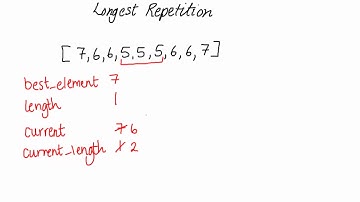 Longest Repetition
[7,6,6,5,5,5,6,6,7]
best_element 7
length 1
current 7 6
current_length 1 2